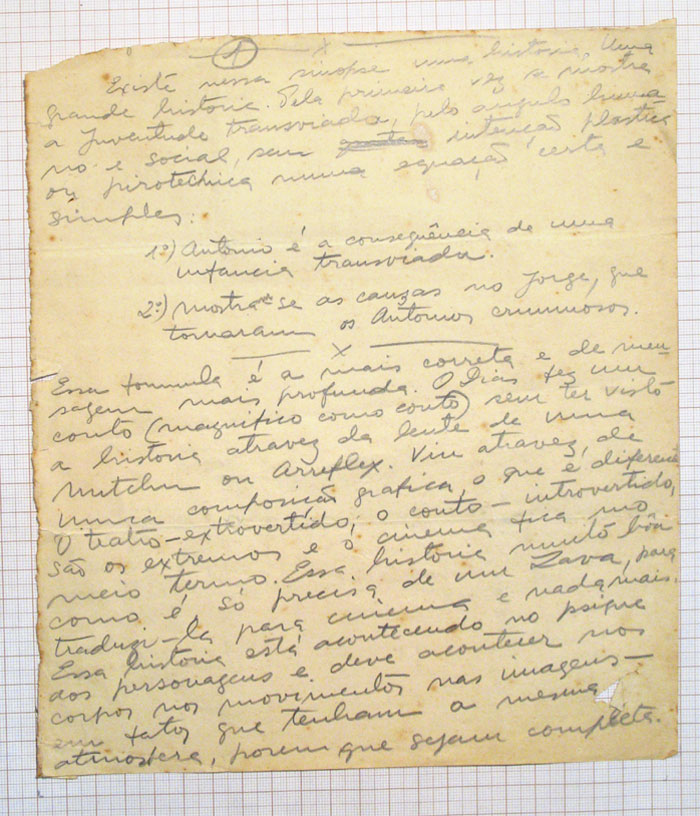 1
Existe nessa sinopse uma historia. Uma
grande historia. Pela primeira vez se mostra
a juventude transviada, pelo angulo huma
no e social, sem intenção plastica
ou pirotechnica numa equação certa e
simples:
1º) Antonio é a consequência de uma
infancia transviada.
2º) mostra-se as cauzas no Jorge, que
tornaram os Antonios criminosos.
x
Essa formula é a mais correta e de men
sagem mais profunda. O Dias fez um
conto (magnifico como conto) sem ter visto
a historia atravez da lente de uma
Mitchu ou Arreflex. Viu atravez de
uma composição grafica o que é diferente
O teatro-extrovertido, o conto-introvertido,
são os extremos e o cinema fica no
meio termo. Essa historia muito bôa
como é, só precisa de um Zava, para
traduzi-la para cinema e nada mais.
Essa historia está acontecendo no psique
dos personagens e deve acontecer nos
corpos nos movimentos nas imagens-
em fatos que tenham a mesma
atmosfera, porem que sejam completa.